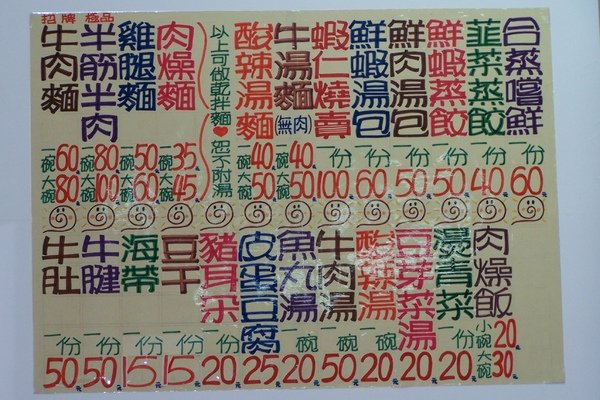 招牌 極品
牛肉麵
一碗60元
大碗80元
半筋半肉
一碗80元
大碗100元
雞腿麵
一碗50元
大碗60元
肉燥麵
一碗35元
大碗45元
以上可做乾拌麵❤恕不附湯
酸辣湯麵
一碗40元
大碗50元
牛湯麵(無肉)
一碗40元
大碗50元
蝦仁燒賣
一份
100元
鮮蝦湯包
一份
60元
鮮肉湯包
一份
50元
鮮蝦蒸餃
一份
50元
韮菜蒸餃
一份
40元
合蒸嚐鮮
一份
60元
牛肚
一份
50元
牛腱
一份
50元
海帶
一份
15元
豆干
一份
15元
豬身杂
一份
20元
皮蛋豆腐
25元
魚丸湯
一碗
20元
牛肉湯
一碗
50元
酸辣湯
一碗
20元
豆芽菜湯
20元
燙青菜
一份
20元
肉燥飯
小碗20元
大碗30元